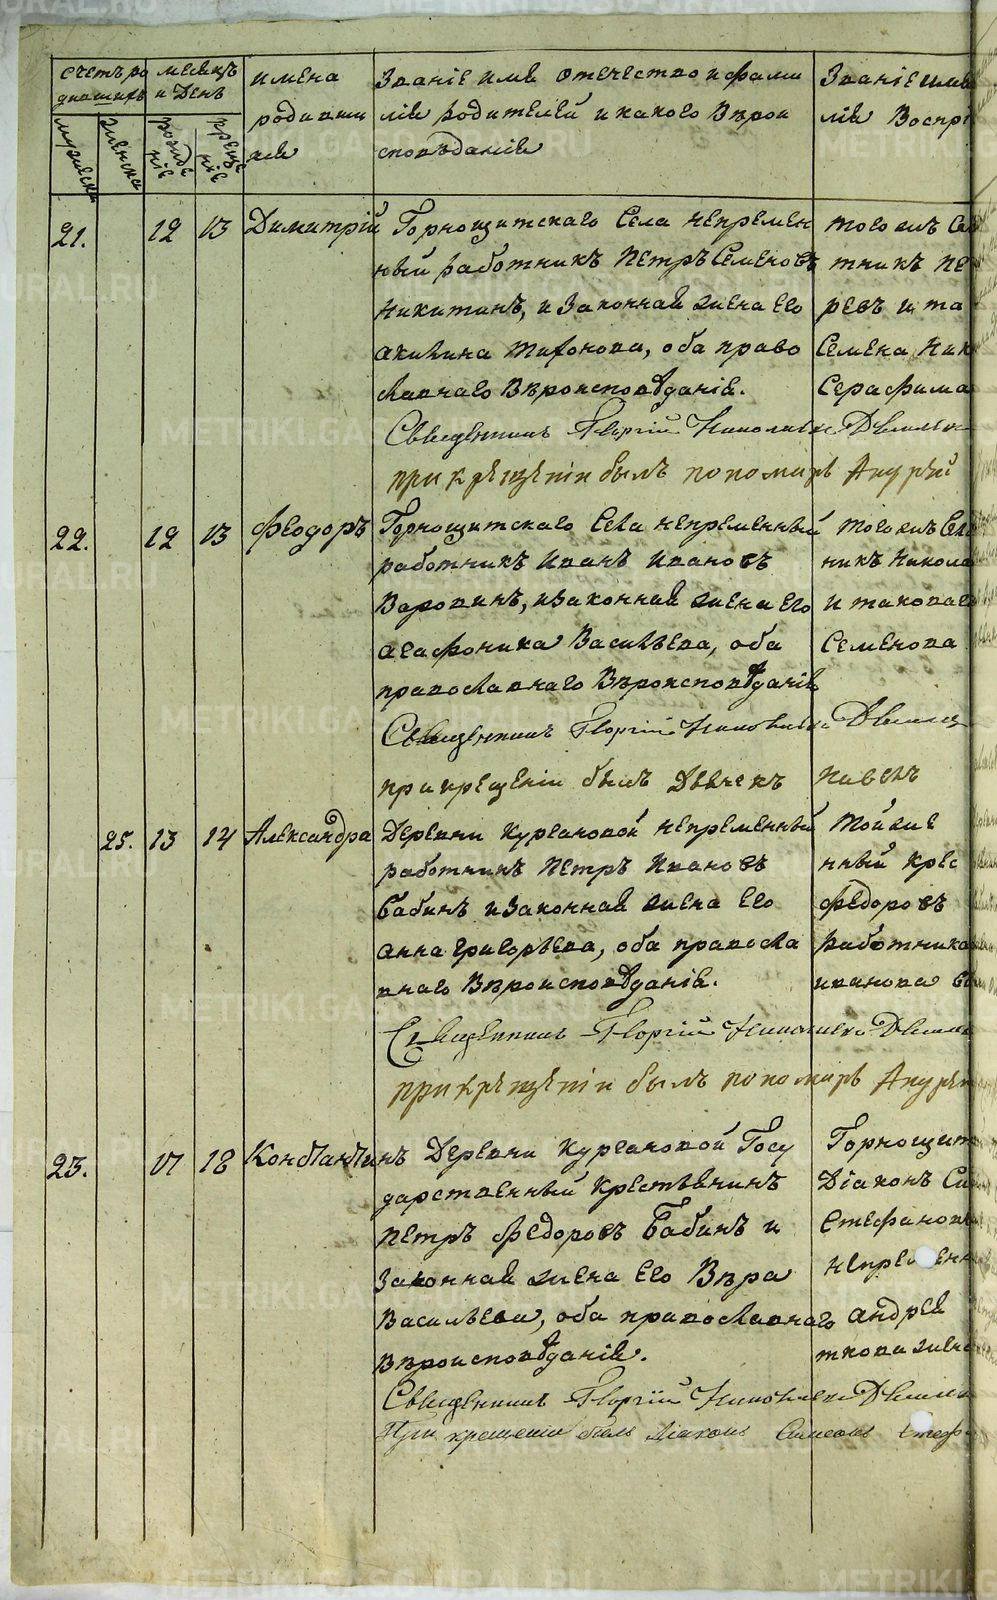 счетъ ро
дившихъ
мужеска
женска
месяцъ
и День
рожде
нiе
креще
нiе
имена
родивши
хся
Званiе имя отечество и фами
лiя родителей и какого Вѣрои
споведанiя
Званiе имя
лiя Воспрi
21.
12
13
Димитрiй
Горнощитскаго Села непремен
ный работникъ Петръ Семеновъ
Никитинъ, и Законная жена его
акилина тихонова, оба право
славнаго Вѣроисповѣданiя.
Священникъ Георгiй Николаевъ
при крещенiи былъ пономарь Андрей
тогожъ Сел
тникъ Пе
ревъ и та
Семена Ник
Серафима
22.
12
13
Феодоръ
Горнощитскаго Села непременный
работникъ Иванъ Ивановъ
Воровинъ, и Законная жена его
агафоника Васильева, оба
православнаго Вѣроисповѣданiя
Священникъ Георгiй Николаевъ
при крещенiи былъ Дьячекъ Павелъ
тогожъ Села
никъ Никола
и таковаго
Семенова
25.
13
14
Александра
Деревни Кургановой непременный
работникъ Петръ Ивановъ
Бабинъ и Законная жена его
Анна Григорьева, оба правосла
внаго Вѣроисповѣданiя.
Священникъ Георгiй Николаевъ
при крещенiи былъ пономарь Андрей
Той же
нный крес
Федоровъ
работника
иванова
23.
17
18
Константинъ
Деревни Кургановой Госу
дарственный Крестьянинъ
Петръ Федоровъ Бабинъ и
Законная жена его Вѣра
Васильева, оба православнаго
Вѣроисповѣданiя.
Священникъ Георгiй Николаевъ
При крещенiи былъ Дiаконъ Симеонъ Стеф
Горнощит
Дiаконъ Си
Стефановъ
непременн
андрей
ткова жена
METRIKI.GASO-URAL.RU